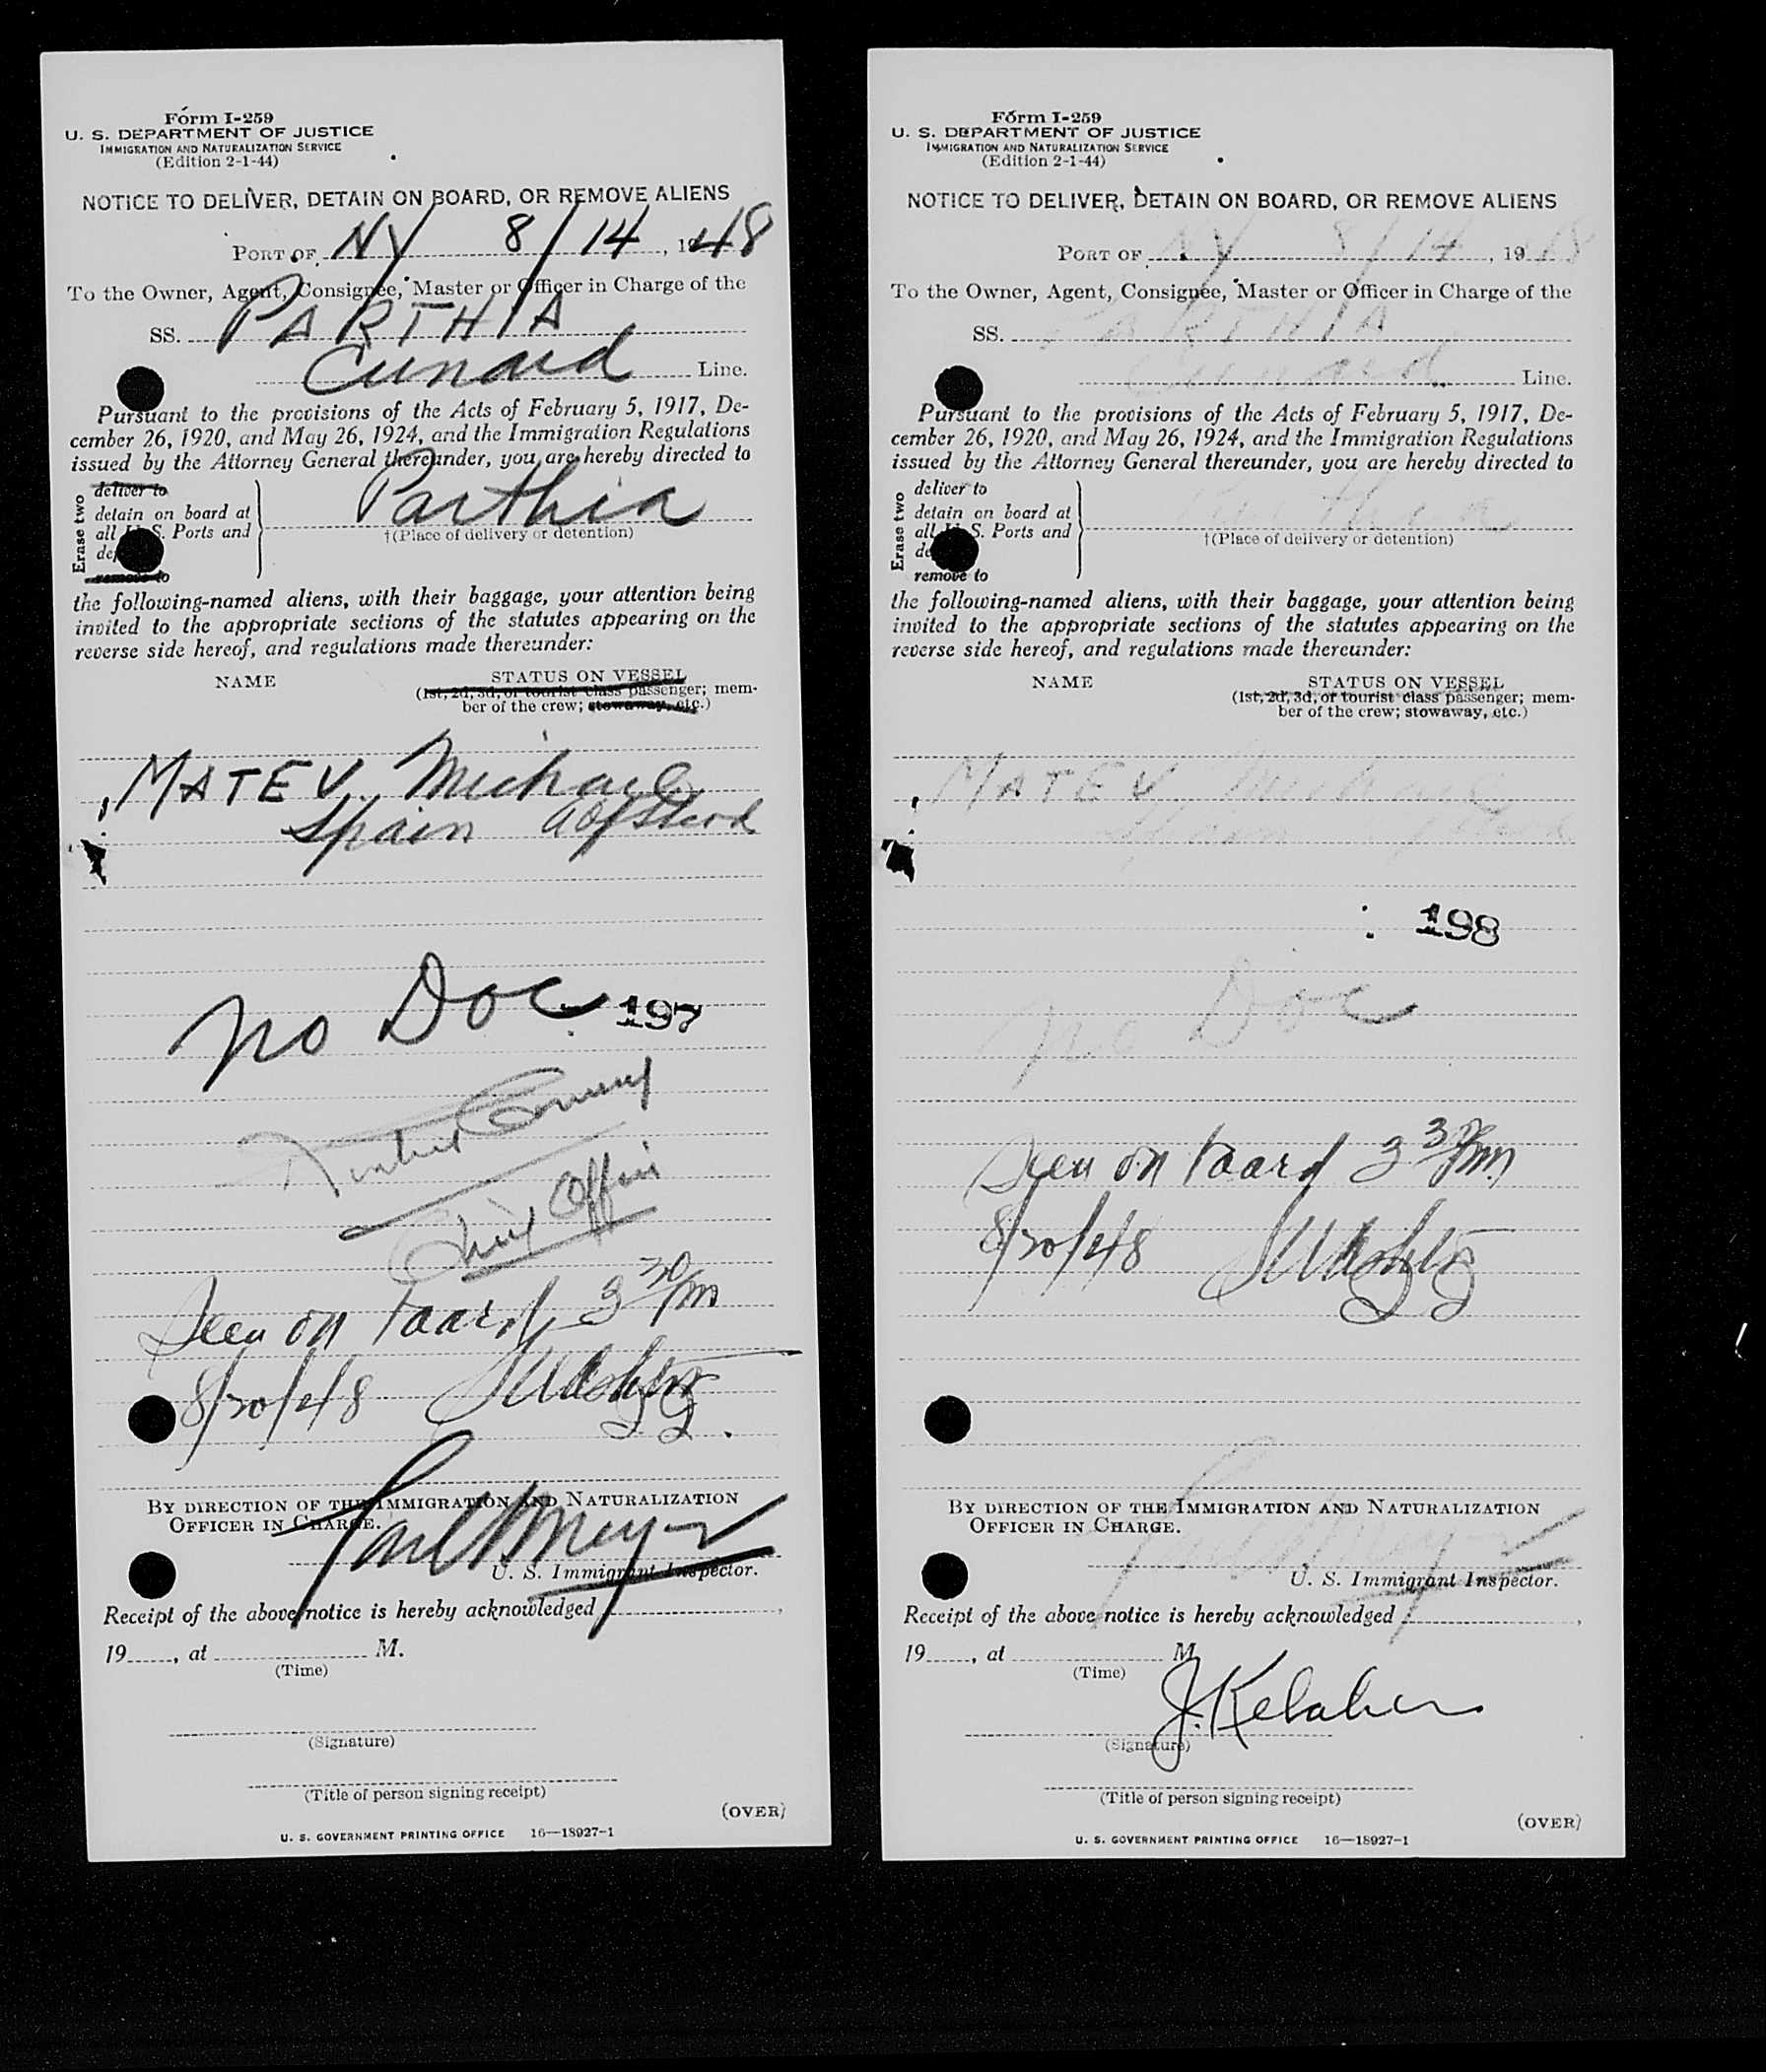 Form I-259
U. S. DEPARTMENT OF JUSTICE
IMMIGRATION AND NATURALIZATION SERVICE
(Edition 2-1-44)
NOTICE TO DELIVER, DETAIN ON BOARD, OR REMOVE ALIENS
PORT OF NY 8/14, 1948
To the Owner, Agent, Consignee, Master or Officer in Charge of the
SS. PARTHIA
Cunard Line.
Pursuant to the provisions of the Acts of February 5, 1917, De-
cember 26, 1920, and May 26, 1924, and the Immigration Regulations
issued by the Attorney General thereunder, you are hereby directed to
Erase two
deliver to
detain on board at
all U. S. Ports and
remove to
Parthia
†(Place of delivery or detention)
the following-named aliens, with their baggage, your attention being
invited to the appropriate sections of the statutes appearing on the
reverse side hereof, and regulations made thereunder:
NAME STATUS ON VESSEL
(1st, 2d, 3d, or tourist class passenger; mem-
ber of the crew; stowaway, etc.)
MATEV Michael
Spain
no Doc 197
Seen on board 3 30 pm
8/20/48
BY DIRECTION OF THE IMMIGRATION AND NATURALIZATION
OFFICER IN CHARGE.
U. S. Immigrant Inspector.
Receipt of the above notice is hereby acknowledged
19, at M.
(Time)
(Signature)
(Title of person signing receipt)
(OVER)
U. S. GOVERNMENT PRINTING OFFICE 16—18927-1
Form I-259
U. S. DEPARTMENT OF JUSTICE
IMMIGRATION AND NATURALIZATION SERVICE
(Edition 2-1-44)
NOTICE TO DELIVER, DETAIN ON BOARD, OR REMOVE ALIENS
PORT OF NY 8/14, 1948
To the Owner, Agent, Consignee, Master or Officer in Charge of the
SS. PARTHIA
Cunard Line.
Pursuant to the provisions of the Acts of February 5, 1917, De-
cember 26, 1920, and May 26, 1924, and the Immigration Regulations
issued by the Attorney General thereunder, you are hereby directed to
Erase two
deliver to
detain on board at
all U. S. Ports and
remove to
Parthia
†(Place of delivery or detention)
the following-named aliens, with their baggage, your attention being
invited to the appropriate sections of the statutes appearing on the
reverse side hereof, and regulations made thereunder:
NAME STATUS ON VESSEL
(1st, 2d, 3d, or tourist class passenger; mem-
ber of the crew; stowaway, etc.)
MATEV Michael
Spain
198
no Doc
Seen on board 3 30 pm
8/20/48
BY DIRECTION OF THE IMMIGRATION AND NATURALIZATION
OFFICER IN CHARGE.
U. S. Immigrant Inspector.
Receipt of the above notice is hereby acknowledged
19, at M.
(Time)
J. Kelaher
(Signature)
(Title of person signing receipt)
(OVER)
U. S. GOVERNMENT PRINTING OFFICE 16—18927-1